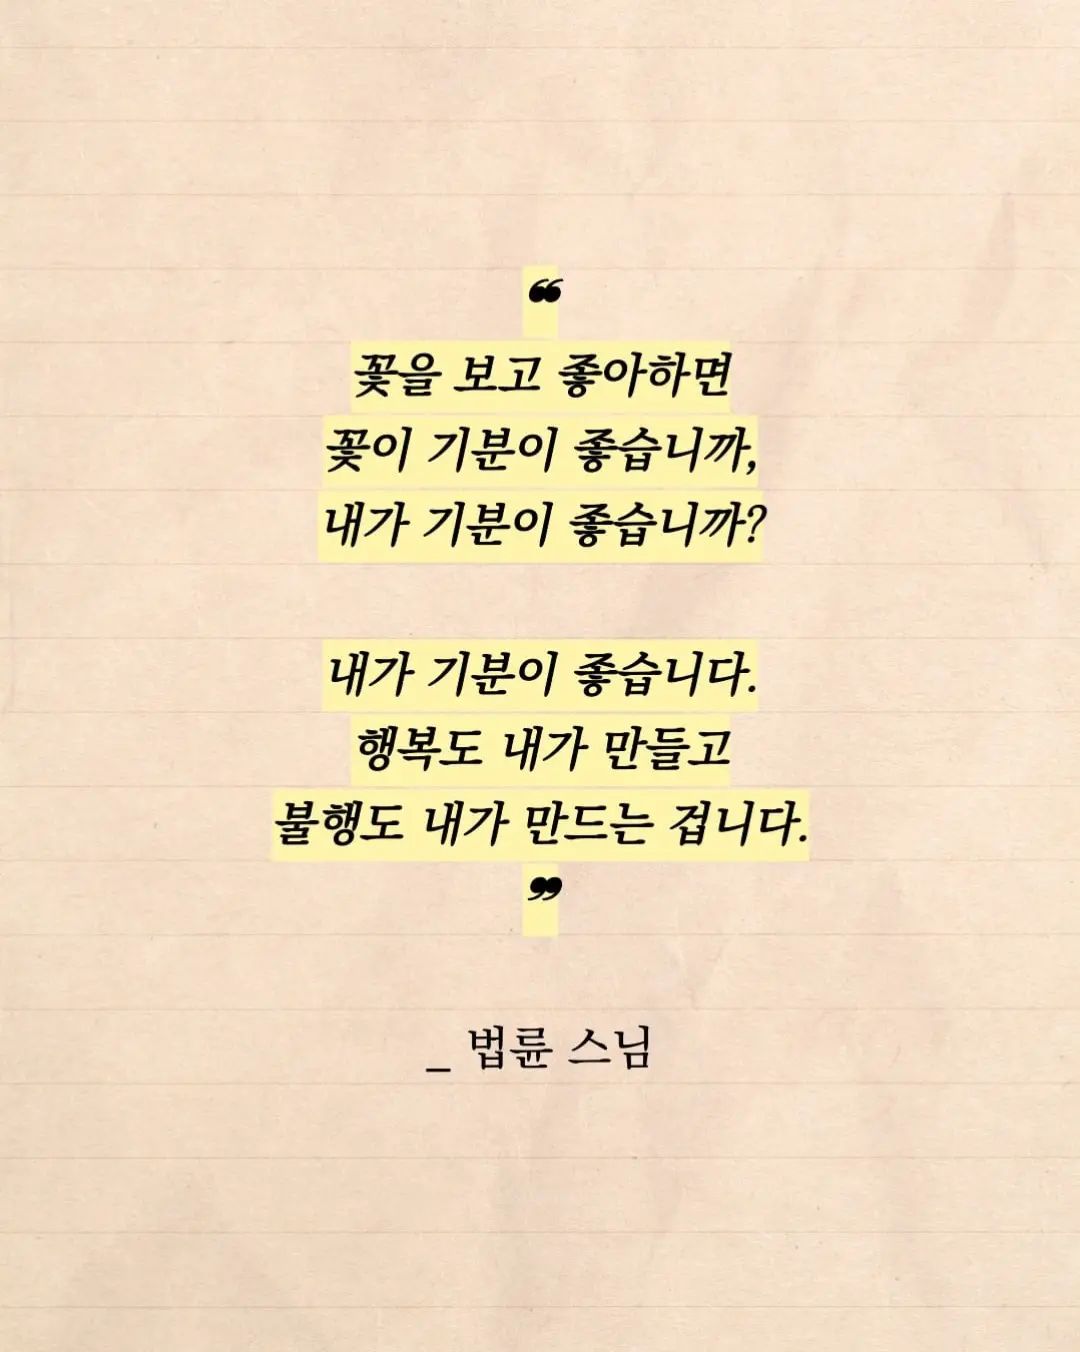 ❝
꽃을 보고 좋아하면
꽃이 기분이 좋습니까,
내가 기분이 좋습니까?
내가 기분이 좋습니다.
행복도 내가 만들고
불행도 내가 만드는 겁니다.
❞
_ 법륜 스님